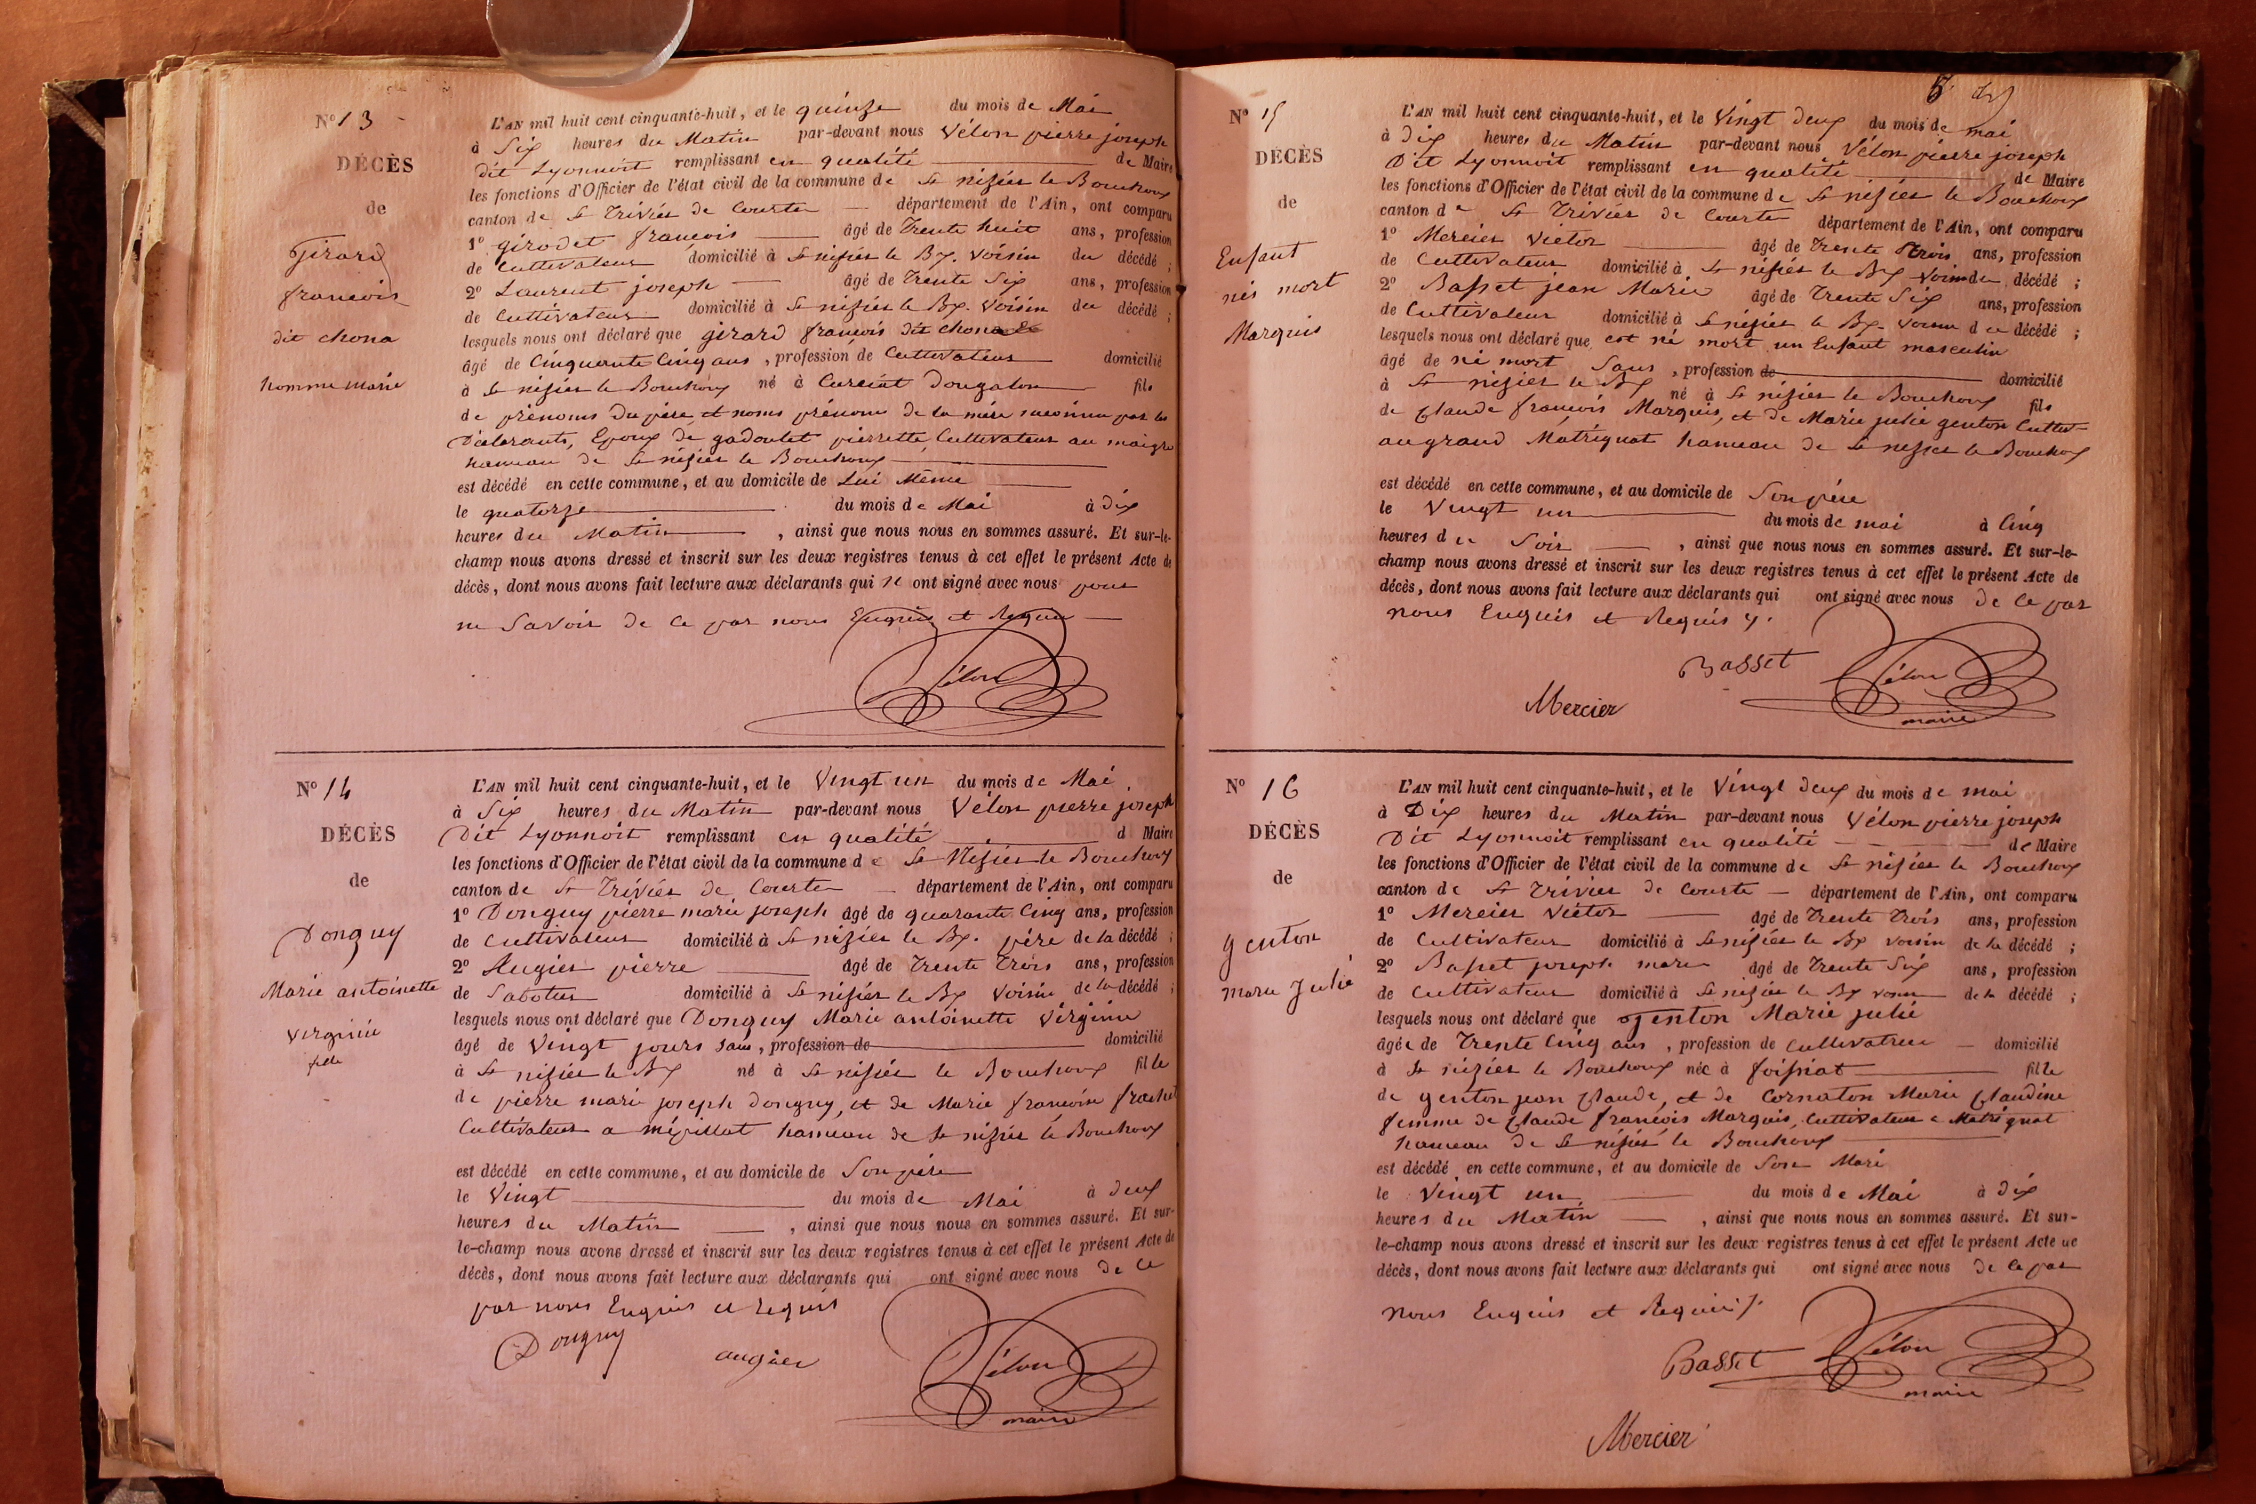 N° 13
DÉCÈS
de
Girard
francois
dit chona
homme marié
L'AN mil huit cent cinquante-huit, et le quinze du mois de Mai
à Six heures du Matin par-devant nous Vélon pierre joseph
dit Lyonnoit remplissant en qualité de Maire
les fonctions d'Officier de l'état civil de la commune de St nizier le Bouchoux
canton de St Trivier de Courtes département de l'Ain, ont comparu
1° girodet francois âgé de Trente huit ans, profession
de Cultivateur domicilié à St nizier le Bx. voisin du décédé ;
2° Laurent joseph âgé de Trente Six ans, profession
de Cultivateur domicilié à St nizier le Bx. voisin du décédé ;
lesquels nous ont déclaré que girard francois dit chona
âgé de Cinquante Cinq ans, profession de Cultivateur domicilié
à St nizier le Bouchoux né à Curciat Dongalon fils
de prénoms du père et noms prénoms de la mère inconnu par les
Déclarants, Epoux de gadoulet pierrette, Cultivateur au maigre
hameau de St nizier le Bouchoux
est décédé en cette commune, et au domicile de Lui Même
le quatorze du mois de Mai à dix
heures du Matin, ainsi que nous nous en sommes assuré. Et sur-le-
champ nous avons dressé et inscrit sur les deux registres tenus à cet effet le présent Acte de
décès, dont nous avons fait lecture aux déclarants qui n'ont signé avec nous pour
ne Savoir de ce par nous Enquis et Requis
Vélon
N° 14
DÉCÈS
de
Donguy
Marie antoinette
virginie
fille
L'AN mil huit cent cinquante-huit, et le Vingt un du mois de Mai
à Six heures du Matin par-devant nous Vélon pierre joseph
Dit Lyonnoit remplissant en qualité d Maire
les fonctions d'Officier de l'état civil de la commune de St Nizier le Bouchoux
canton de St Trivier de Courtes département de l'Ain, ont comparu
1° Donguy pierre marie joseph âgé de quarante Cinq ans, profession
de Cultivateur domicilié à St nizier le Bx. père de la décédé ;
2° Augier pierre âgé de Trente Trois ans, profession
de Sabotier domicilié à St nizier le Bx voisin de la décédé ;
lesquels nous ont déclaré que Donguy Marie antoinette Virginie
âgé de Vingt jours sans, profession de domicilié
à St nizier le Bx né à St nizier le Bouchoux fille
de pierre marie joseph Donguy, et de Marie francoise frachet
Cultivateur a mépillat hameau de St nizier le Bouchoux
est décédé en cette commune, et au domicile de Son père
le Vingt du mois de Mai à deux
heures du Matin, ainsi que nous nous en sommes assuré. Et sur-
le-champ nous avons dressé et inscrit sur les deux registres tenus à cet effet le présent Acte de
décès, dont nous avons fait lecture aux déclarants qui ont signé avec nous de ce
par nous Enquis et requis
Donguy augier Vélon
maire
N° 15
DÉCÈS
de
Enfant
nés mort
Marquis
L'AN mil huit cent cinquante-huit, et le Vingt deux du mois de mai
à Dix heures du Matin par-devant nous Vélon pierre joseph
Dit Lyonnoit remplissant en qualité de Maire
les fonctions d'Officier de l'état civil de la commune de St nizier le Bouchoux
canton de St Trivier de Courtes département de l'Ain, ont comparu
1° Mercier Victor âgé de Trente Trois ans, profession
de Cultivateur domicilié à St nizier le Bx voisin du décédé ;
2° Basset jean Marie âgé de Trente Six ans, profession
de Cultivateur domicilié à St nizier le Bx voisin du décédé ;
lesquels nous ont déclaré que est né mort un Enfant masculin
âgé de né mort Sans, profession de domicilié
à St nizier le Bx né à St nizier le Bouchoux fils
de Claude francois Marquis, et de Marie julie genton Cultiv-
au grand Matrignat hameau de St nizier le Bouchoux
est décédé en cette commune, et au domicile de Son père
le Vingt un du mois de mai à Cinq
heures du Soir, ainsi que nous nous en sommes assuré. Et sur-le-
champ nous avons dressé et inscrit sur les deux registres tenus à cet effet le présent Acte de
décès, dont nous avons fait lecture aux déclarants qui ont signé avec nous de ce par
nous Enquis et Requis
Basset Vélon
Mercier maire
N° 16
DÉCÈS
de
genton
marie Julie
L'AN mil huit cent cinquante-huit, et le Vingt deux du mois de mai
à Dix heures du Matin par-devant nous Vélon pierre joseph
Dit Lyonnoit remplissant en qualité de Maire
les fonctions d'Officier de l'état civil de la commune de St nizier le Bouchoux
canton de St Trivier de Courtes département de l'Ain, ont comparu
1° Mercier Victor âgé de Trente Trois ans, profession
de Cultivateur domicilié à St nizier le Bx voisin de la décédé ;
2° Basset joseph marie âgé de Trente Six ans, profession
de Cultivateur domicilié à St nizier le Bx voisin de la décédé ;
lesquels nous ont déclaré que genton Marie julie
âgée de Trente Cinq ans, profession de Cultivatrice domicilié
à St nizier le Bouchoux née à foissiat fille
de genton jean Claude, et de Cornaton Marie Claudine
femme de Claude francois Marquis, Cultivateur a Matrignat
hameau de St nizier le Bouchoux
est décédé en cette commune, et au domicile de Son Mari
le Vingt un du mois de Mai à dix
heures du Matin, ainsi que nous nous en sommes assuré. Et sur-
le-champ nous avons dressé et inscrit sur les deux registres tenus à cet effet le présent Acte de
décès, dont nous avons fait lecture aux déclarants qui ont signé avec nous de ce par
nous Enquis et Requis
Basset Vélon
maire
Mercier